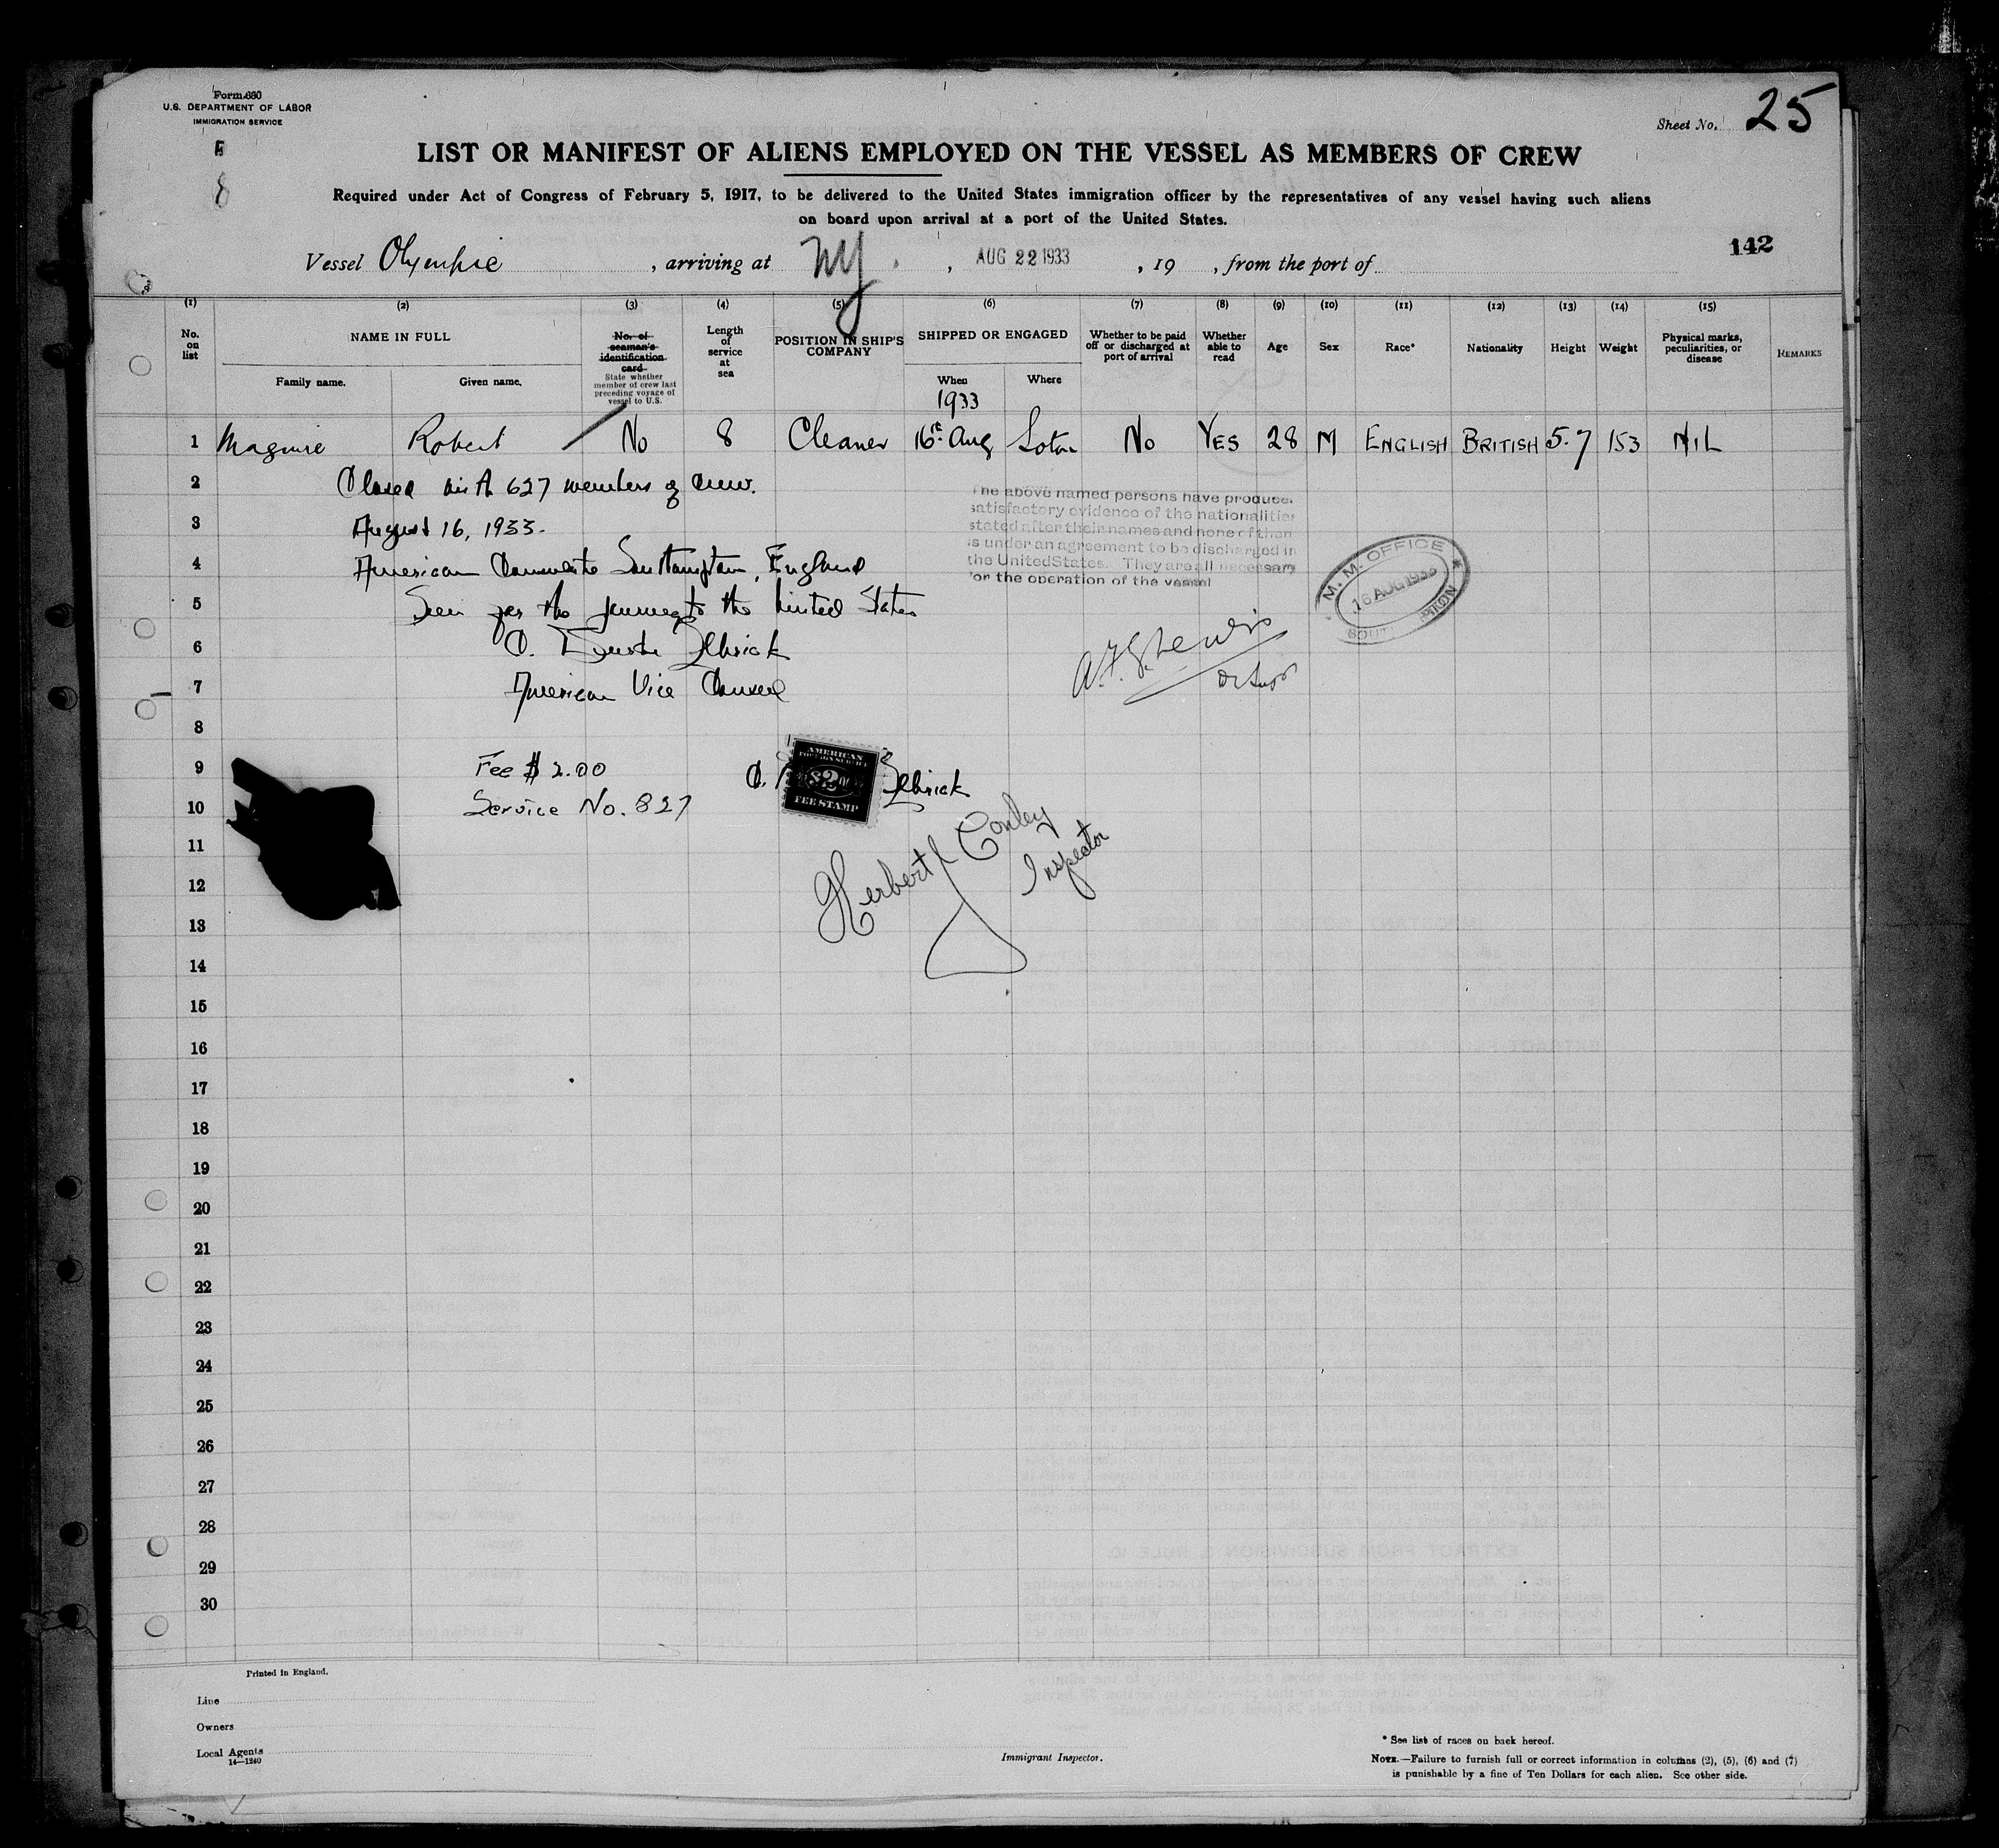 Form 680
U.S. DEPARTMENT OF LABOR
IMMIGRATION SERVICE
Sheet No. 25
LIST OR MANIFEST OF ALIENS EMPLOYED ON THE VESSEL AS MEMBERS OF CREW
Required under Act of Congress of February 5, 1917, to be delivered to the United States immigration officer by the representatives of any vessel having such aliens
on board upon arrival at a port of the United States.
142
Vessel Olympic, arriving at NY., AUG 22 1933, 19 , from the port of
(1) (2) (3) (4) (5) (6) (7) (8) (9) (10) (11) (12) (13) (14) (15)
No. on list
NAME IN FULL
Family name.
Given name.
No. of seaman's identification card
State whether member of crew last preceding voyage of vessel to U.S.
Length of service at sea
POSITION IN SHIP'S COMPANY
SHIPPED OR ENGAGED
When
1933
Where
Whether to be paid off or discharged at port of arrival
Whether able to read
Age
Sex
Race*
Nationality
Height
Weight
Physical marks, peculiarities, or disease
REMARKS
1 Maguire Robert No 8 Cleaner 16th Aug Soton No YES 28 M ENGLISH BRITISH 5.7 153 NIL
2 Closed with 627 members of crew.
3 August 16, 1933.
4 American Consulate Southampton, England
5 Seen for the journey to the United States
6
7 American Vice Consul
The above named persons have produce
satisfactory evidence of the nationalities
stated after their names and none of them
is under an agreement to be discharged in
the United States. They are all necessary
for the operation of the vessel
M. M. OFFICE
16 AUG 1933
A.F.G. Lewis
8
9 Fee $ 2.00
10 Service No. 827
AMERICAN
FOREIGN SERVICE
$2.00
FEE STAMP
Herbert J Conley
Inspector
11
12
13
14
15
16
17
18
19
20
21
22
23
24
25
26
27
28
29
30
Printed in England.
Line
Owners
Local Agents
14—1240
Immigrant Inspector.
* See list of races on back hereof.
NOTE.—Failure to furnish full or correct information in columns (2), (5), (6) and (7)
is punishable by a fine of Ten Dollars for each alien. See other side.